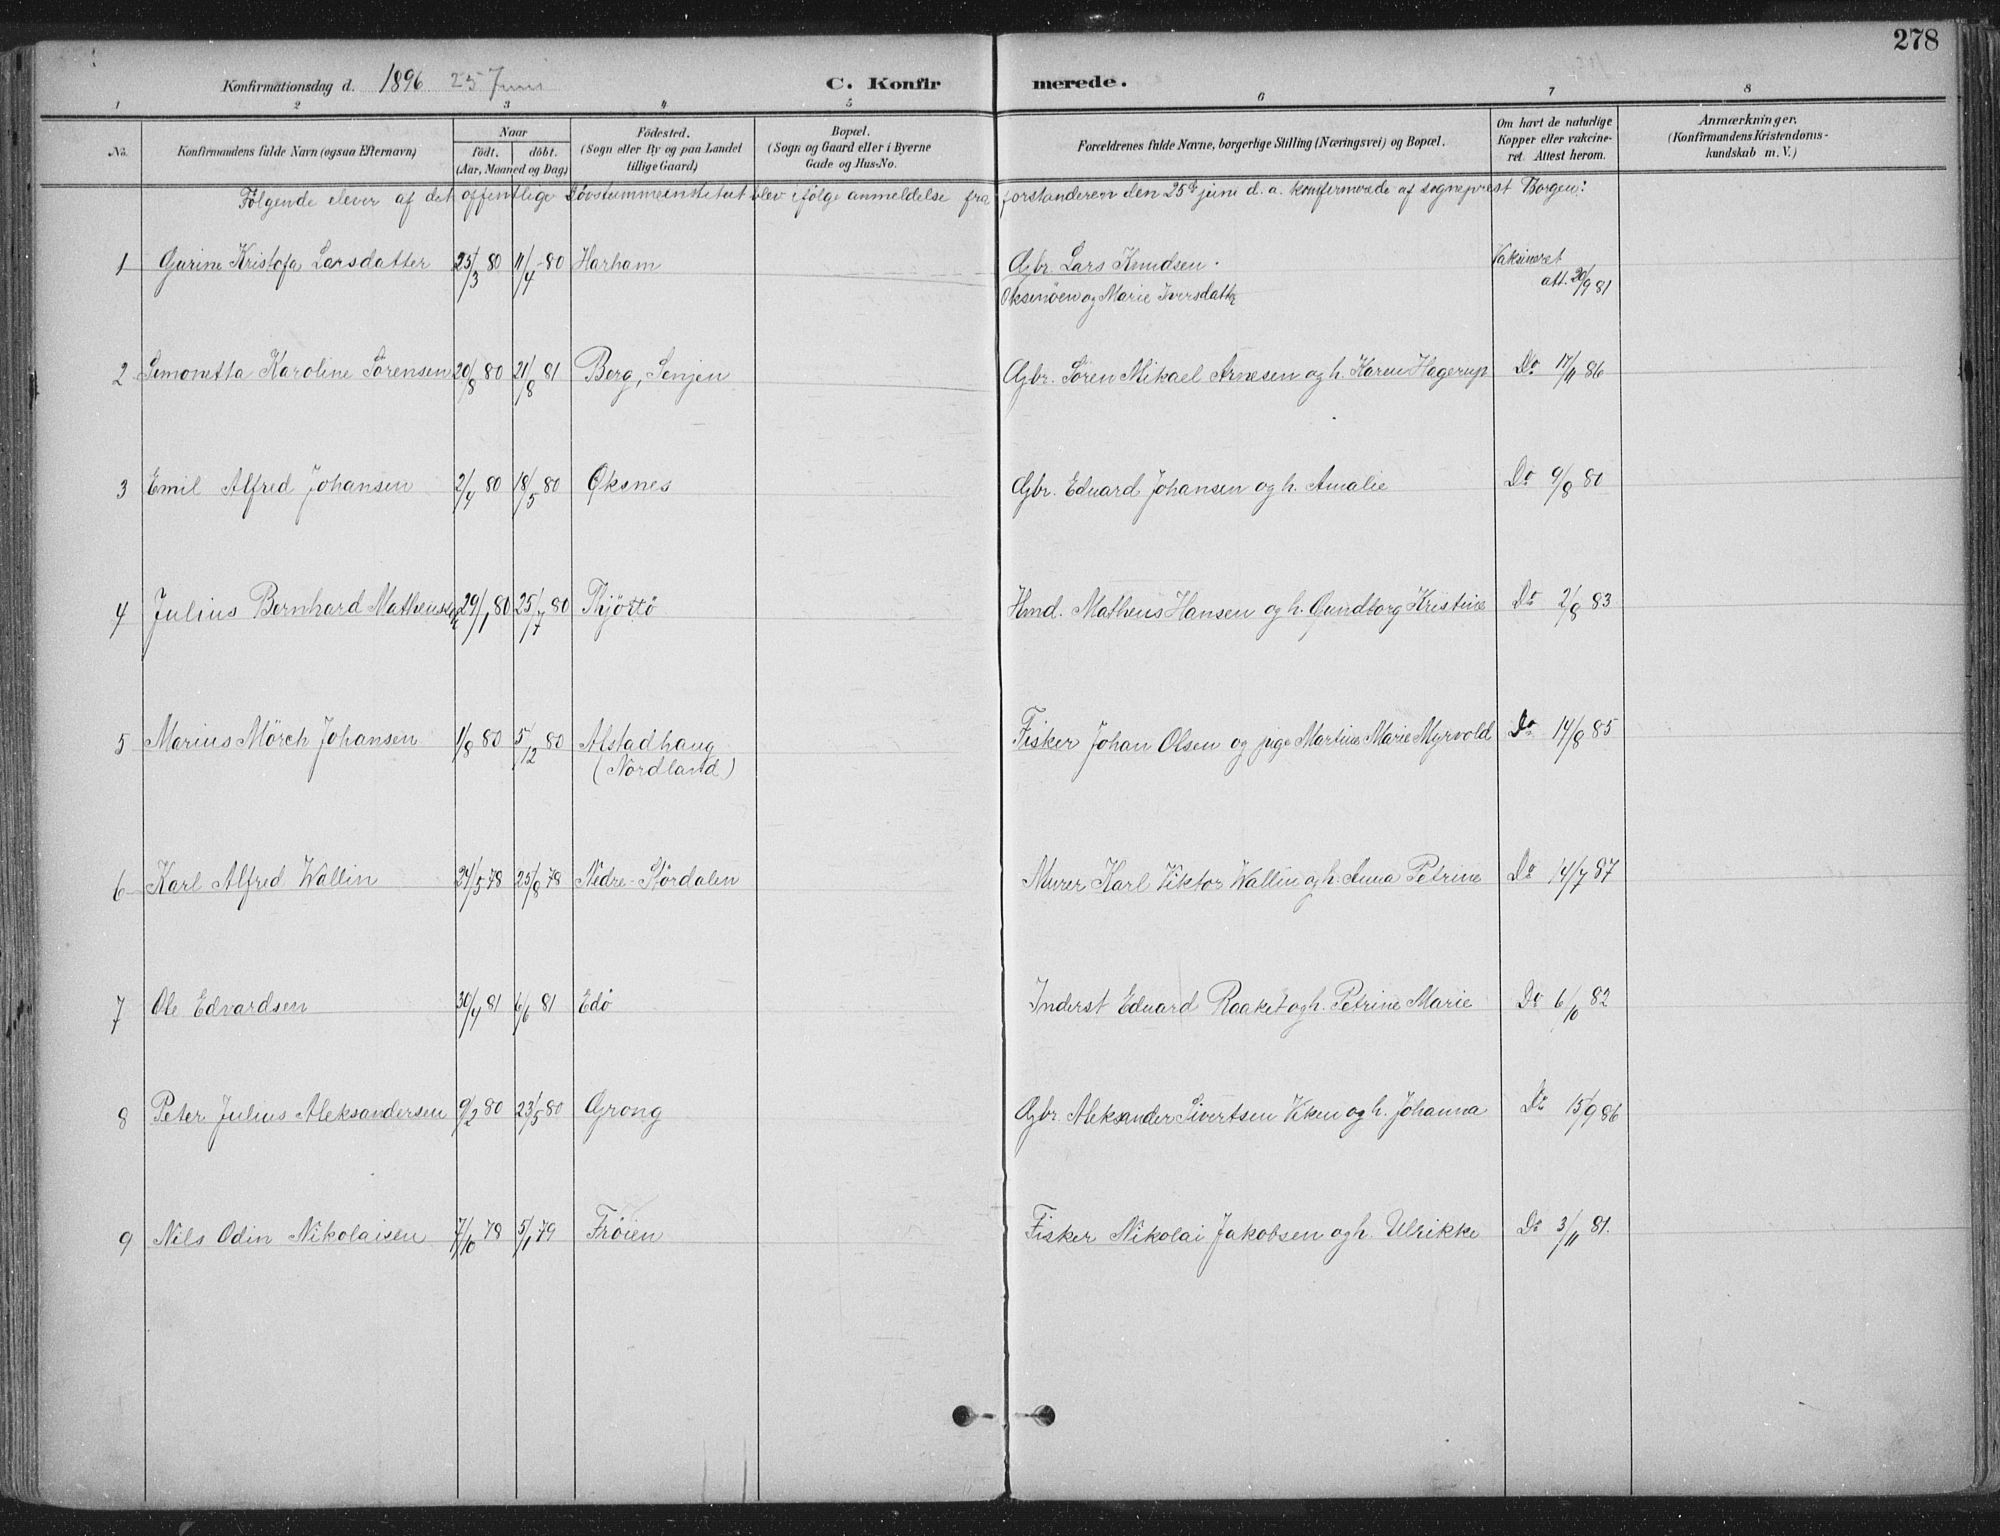 278
Konfirmationsdag d. 1896 25 Juni
C. Konfir merede.
1 2 3 4 5 6 7 8
No. Konfirmandens fulde Navn (ogsaa Efternavn)
Naar
födt. döbt.
(Aar, Maaned og Dag)
Födested.
(Sogn eller By og paa Landet
tillige Gaard)
Bopæl.
(Sogn og Gaard eller i Byerne
Gade og Hus-No.
Forældrenes fulde Navne, borgerlige Stilling (Næringsvei) og Bopæl.
Om havt de naturlige
Kopper eller vakcine-
ret. Attest herom.
Anmærkninger.
(Konfirmandens Kristendoms-
kundskab m. V.)
Følgende elever af det offentlige Døvstummeinstitut blev ifølge anmeldelse fra forstanderen den 25de juni d. a. konfirmerede af sogneprest Borgen:
1 Gurine Kristofa Larsdatter 25/3 80 11/4 80 Harham Gbr. Lars Knudsen. Vaksineret
Oksenöen og Marie Iversdatter att. 20/9 81
2 Simonetta Karoline Sørensen 20/8 80 21/8 81 Berg, Senjen Gbr. Søren Mikael Arnesen og h. Karen Hagerup Do 17/11 86
3 Emil Alfred Johansen 2/4 80 18/5 80 Øksnes Gbr. Eduard Johansen og h. Amalie Do 9/8 80
4 Julius Bernhard Matheussen 29/1 80 25/7 80 Tjøttö Hmd. Matheus Hansen og h. Gundborg Kristine Do 2/8 83
5 Marius Mörch Johansen 1/8 80 5/12 80 Alstadhaug Fisker Johan Olsen og pige Martine Marie Myrvold Do 14/8 85
(Nordland)
6 Karl Alfred Wallin 24/5 78 25/8 78 Nedre-Størdalen Murer Karl Viktor Wallin og h. Anna Petrine Do 14/7 87
7 Ole Edvardsen 30/4 81 6/6 81 Edö Inderst Eduard Raaket og h. Petrine Marie Do 6/10 82
8 Peter Julius Aleksandersen 9/2 80 23/5 80 Grong Gbr. Aleksander Sivertsen Veken og h. Johanna Do 15/9 86
9 Nils Odin Nikolaisen 7/10 78 5/1 79 Frøien Fisker Nikolai Jakobsen og h. Ulrikke Do 3/11 81.